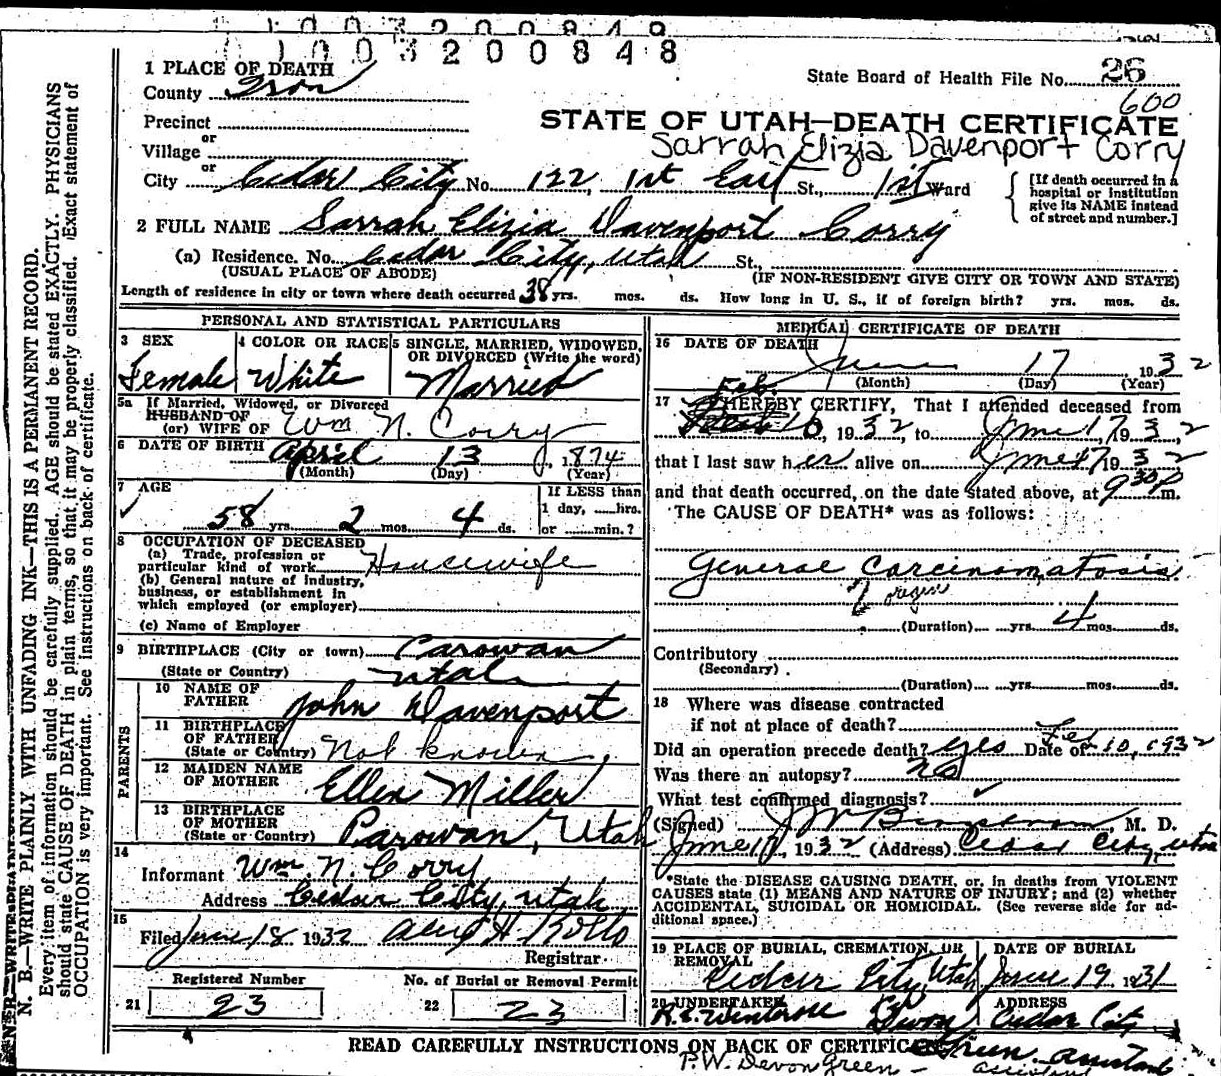 1003200849
1003200848
1 PLACE OF DEATH
State Board of Health File No. 26
County Iron
600
Precinct
STATE OF UTAH—DEATH CERTIFICATE
or
Village
Sarrah Elizia Davenport Corry
or
City Cedar City No. 122, 1st East St., 1st Ward
[If death occurred in a hospital or institution give its NAME instead of street and number.]
2 FULL NAME Sarrah Elizia Davenport Corry
(a) Residence. No. Cedar City, Utah St.,
(USUAL PLACE OF ABODE) (IF NON-RESIDENT GIVE CITY OR TOWN AND STATE)
Length of residence in city or town where death occurred 38 yrs. mos. ds. How long in U. S., if of foreign birth? yrs. mos. ds.
PERSONAL AND STATISTICAL PARTICULARS
3 SEX Female
4 COLOR OR RACE White
5 SINGLE, MARRIED, WIDOWED, OR DIVORCED (Write the word) Married
5a If Married, Widowed, or Divorced
HUSBAND OF
(or) WIFE OF Wm N. Corry
6 DATE OF BIRTH April 13, 1874
(Month) (Day) (Year)
7 AGE
If LESS than
1 day, ......hrs.
58 yrs. 2 mos. 4 ds. or ......min.?
8 OCCUPATION OF DECEASED
(a) Trade, profession or
particular kind of work Housewife
(b) General nature of industry,
business, or establishment in
which employed (or employer)
(c) Name of Employer
9 BIRTHPLACE (City or town) Parowan
(State or Country) Utah
PARENTS
10 NAME OF
FATHER John Davenport
11 BIRTHPLACE
OF FATHER
(State or Country) Not known
12 MAIDEN NAME
OF MOTHER Ellen Miller
13 BIRTHPLACE
OF MOTHER
(State or Country) Parowan, Utah
14
Informant Wm. N. Corry
Address Cedar City, Utah
15
Filed June 18 1932
Registrar.
Registered Number
21 23
No. of Burial or Removal Permit
22 23
MEDICAL CERTIFICATE OF DEATH
16 DATE OF DEATH June 17 1932
(Month) (Day) (Year)
Feb
17 I HEREBY CERTIFY, That I attended deceased from
10, 1932, to June 17, 1932
that I last saw her alive on June 17 1932
and that death occurred, on the date stated above, at 9 30 P m.
The CAUSE OF DEATH* was as follows:
General Carcinomatosis
? origin
(Duration) yrs. 4 mos. ds.
Contributory
(Secondary)
(Duration) yrs. mos. ds.
18 Where was disease contracted
if not at place of death?
Did an operation precede death? yes Date of Feb 10, 1932
Was there an autopsy? no
What test confirmed diagnosis? ✓
(Signed) J W , M. D.
June 17, 1932 (Address) Cedar City, Utah
*State the DISEASE CAUSING DEATH, or, in deaths from VIOLENT
CAUSES state (1) MEANS AND NATURE OF INJURY; and (2) whether
ACCIDENTAL, SUICIDAL OR HOMICIDAL. (See reverse side for ad-
ditional space.)
19 PLACE OF BURIAL, CREMATION, OR
REMOVAL
Cedar City, Utah
DATE OF BURIAL
June 19 1931
20 UNDERTAKER
Devon
ADDRESS
Cedar City
Green assistant
READ CAREFULLY INSTRUCTIONS ON BACK OF CERTIFICATE
P.W. Devon Green - assistant
N. B.—WRITE PLAINLY WITH UNFADING INK—THIS IS A PERMANENT RECORD.
Every item of information should be carefully supplied. AGE should be stated EXACTLY. PHYSICIANS
should state CAUSE OF DEATH in plain terms, so that it may be properly classified. Exact statement of
OCCUPATION is very important. See instructions on back of certificate.